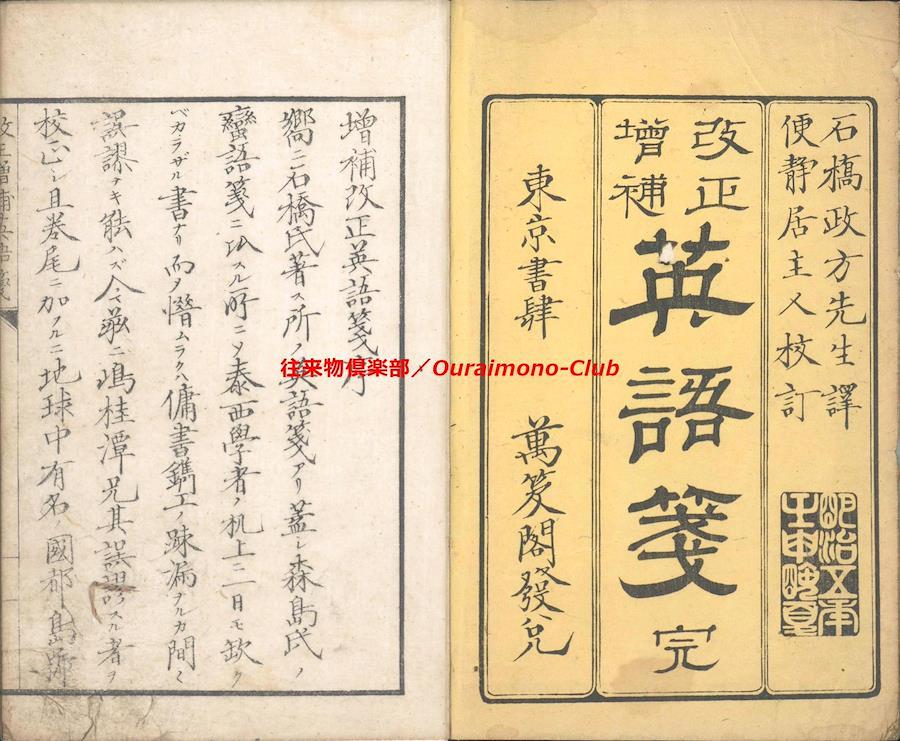 石橋政方先生譯
便静居主人校訂
明治五年
壬申晩夏
改正
增補
英語箋
完
東京書肆 萬笈閣發兌
增補改正英語箋序
嚮ニ石橋氏著ス所ノ英語箋アリ蓋シ森島氏ノ
蠻語箋ニ泒スル所ニ〆泰西學者ノ机上一日モ欽ク
ベカラザル書ナリ而〆憯ムラクハ傭書鐫工ノ疎漏ナルカ間〻
誤謬ナキ能ハズ今茲ニ嶋桂潭兄其誤謬スル者ヲ
校正シ且巻尾ニ加フルニ地球中有名ノ國都島
改正增補英語箋
往来物倶楽部／Ouraimono-Club